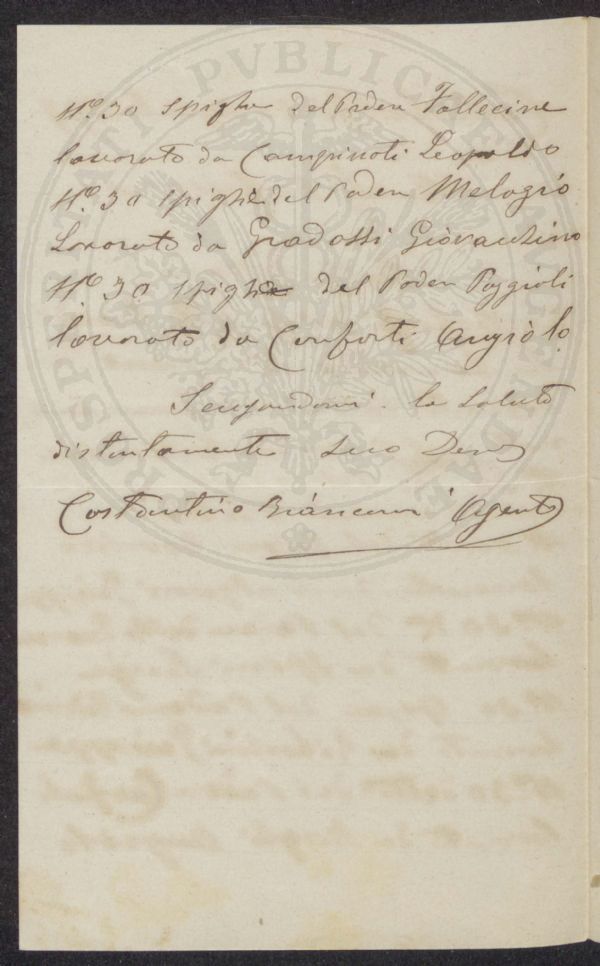 N.º 30 spighe del Podere Fallecine
lavorato da Campinoti Leopoldo
N.º 30 spighe del Poden Melogio
Lavorato da Gradossi Giovantino
N.º 30 spighe del Poden Poggioli
lavorato da Conforti Angiolo
Segnandomi la saluto
distintamente suo Dev
Costantino Biancani Agente